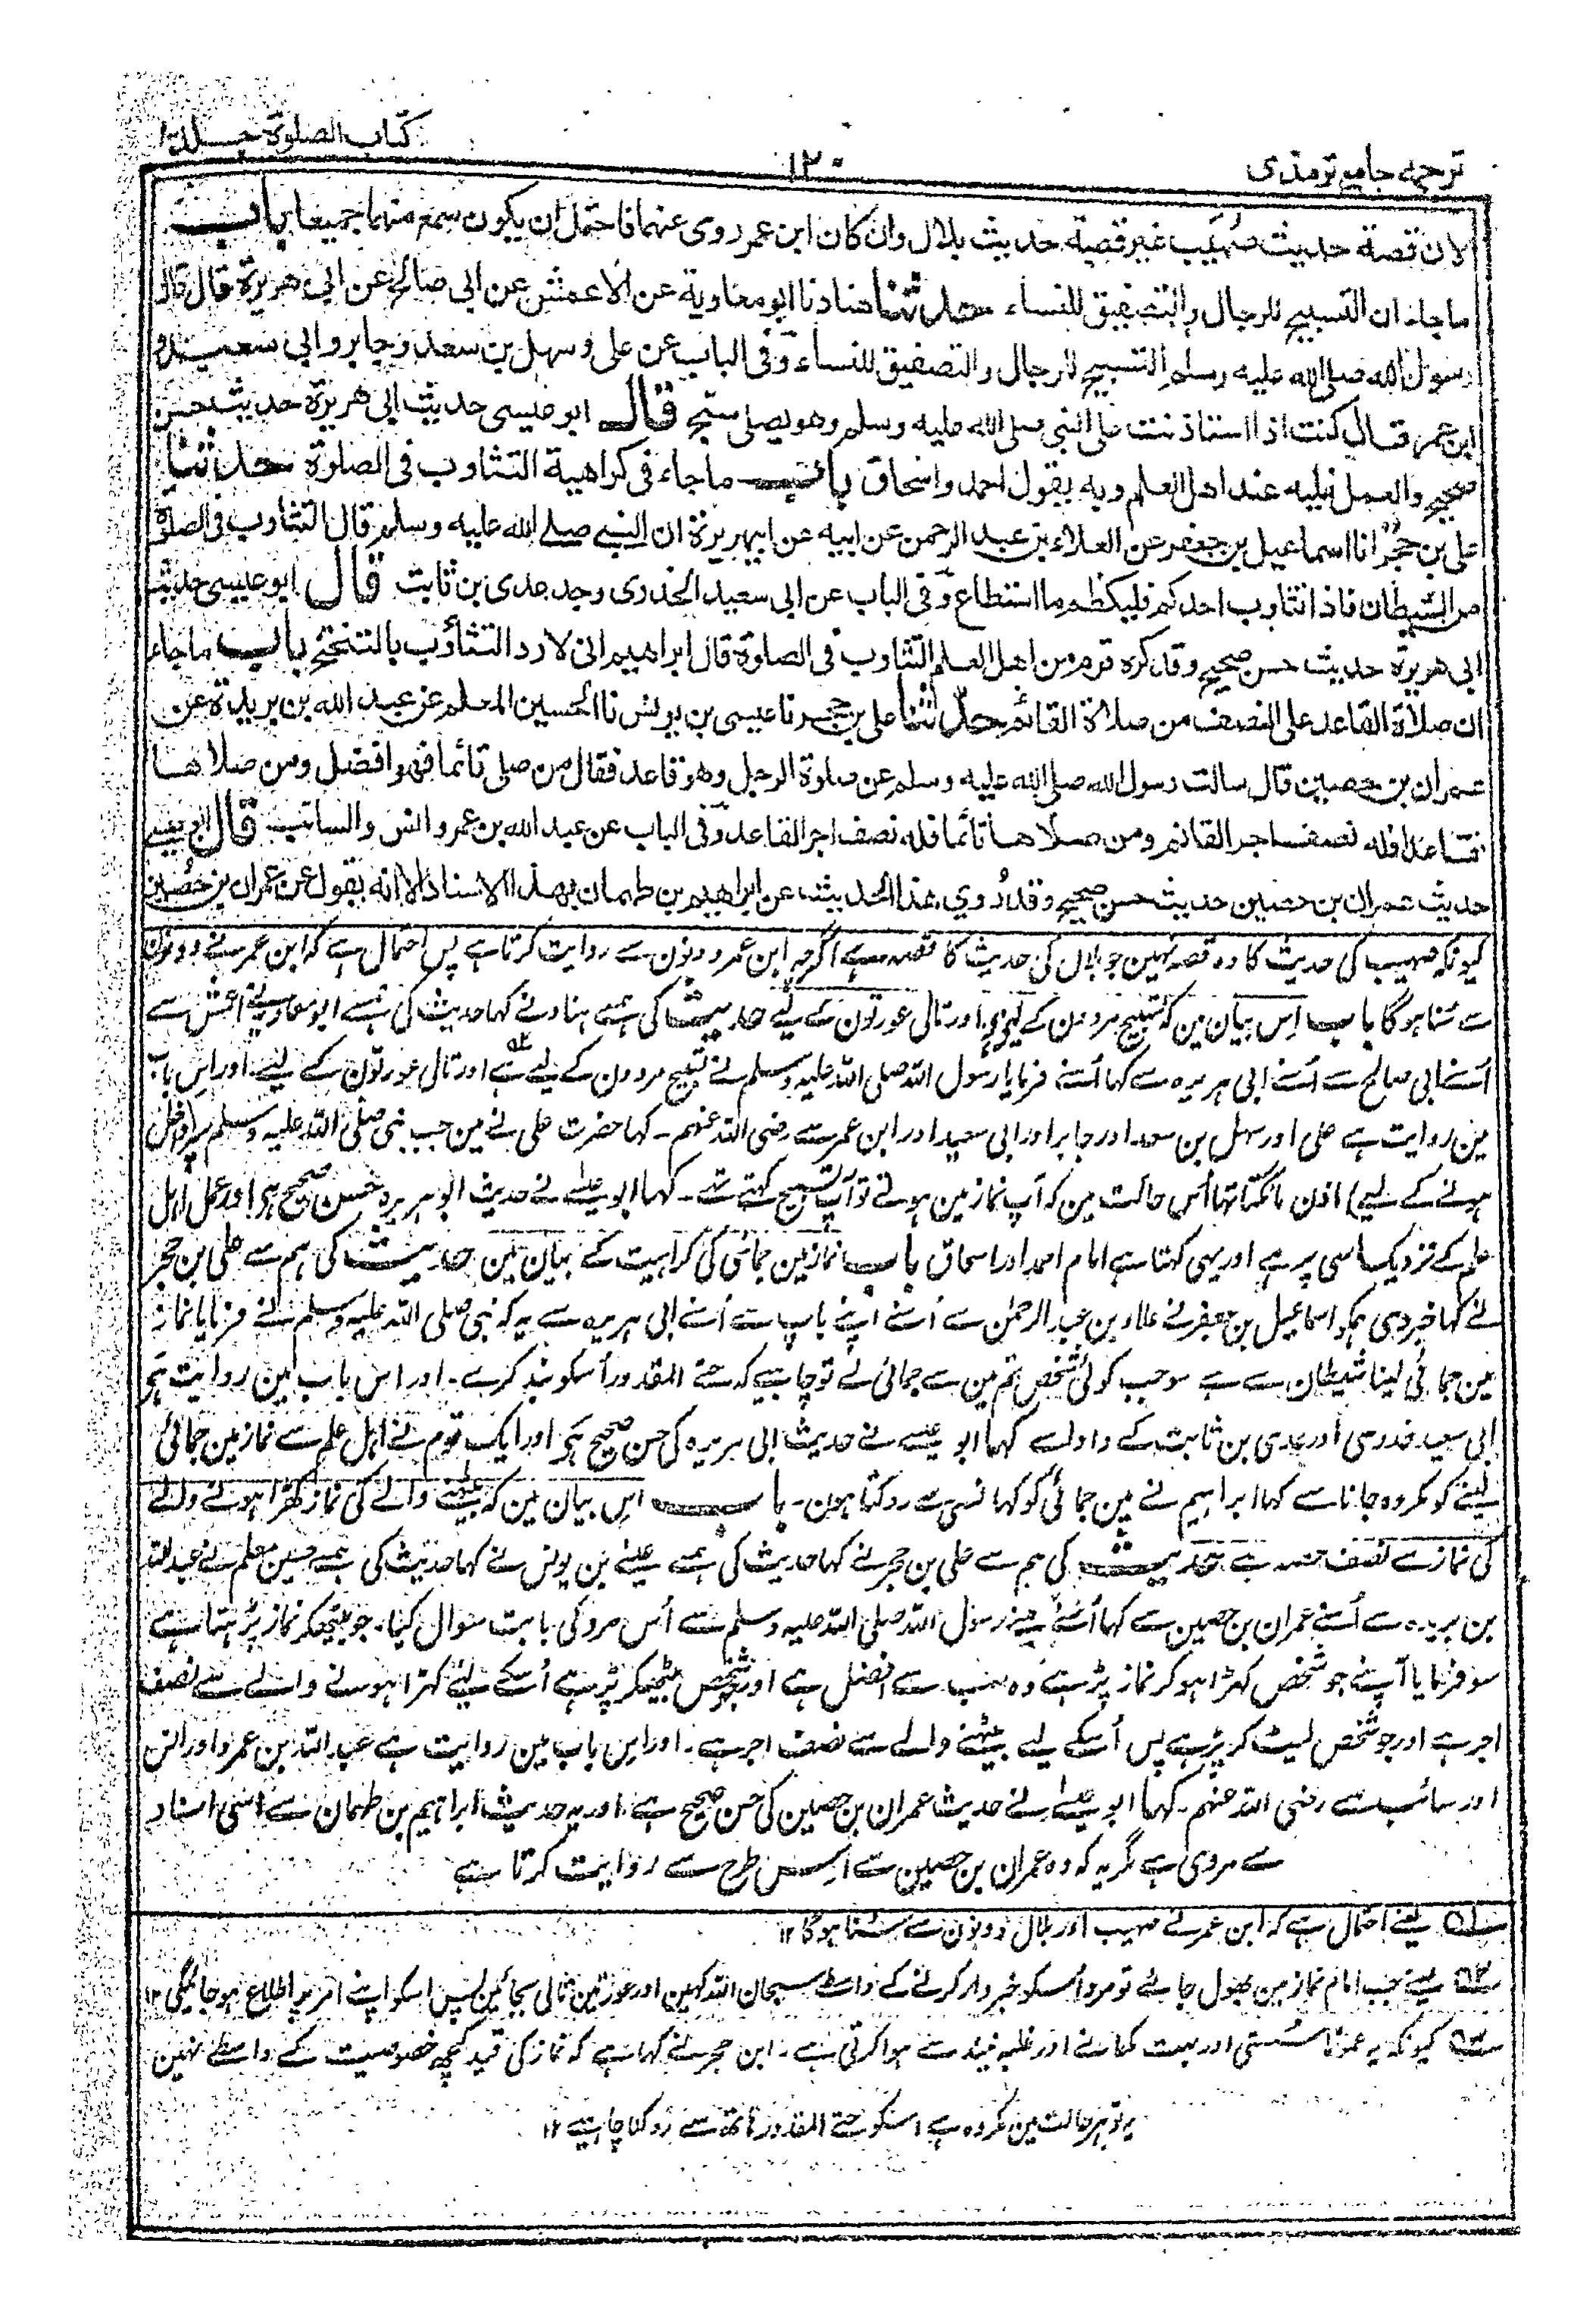 کتاب الصلوۃ جلد ۱
ترجمہ جامع ترمذی
۱۲۰
لان قصة حديث صُهَيب غير قصة حديث بلال وان كان ابن عمر روى عنهما فاحتمل ان يكون سمع منهما جميعا باب
ماجاء ان التسبيح للرجال والتصفيق للنساء حدثنا هناد نا ابو معاوية عن الاعمش عن ابى صالح عن ابى هريرة قال قال
رسول الله صلى الله عليه وسلم التسبيح للرجال والتصفيق للنساء وفى الباب عن على وسهل بن سعد وجابر وابى سعيد و
ابن عمر قال كنت اذا استاذنت على النبى صلى الله عليه وسلم وهو يصلى سبح قال ابو عيسى حديث ابى هريرة حديث حسن
صحيح والعمل عليه عند اهل العلم وبه يقول احمد واسحاق باب ماجاء فى كراهية التثاوب فى الصلوة حدثنا
على بن حُجْر انا اسماعيل بن جعفر عن العلاء بن عبد الرحمن عن ابيه عن ابيهريرة ان النبى صلے الله عليه وسلم قال التثاوب فى الصلوة
من الشيطان فاذا تثاوب احدكم فليكظم ما استطاع وفى الباب عن ابى سعيد الخدرى وجد عدى بن ثابت قال ابو عيسى حديث
ابى هريرة حديث حسن صحيح وقد كره قوم من اهل العلم التثاوب فى الصلوة قال ابراهيم انى لارد التثاؤب بالتنحنح باب ماجاء
ان صلاة القاعد على النصف من صلاة القائم حدثنا على بن حجر نا عيسى بن يونس نا الحسين المعلم عن عبد الله بن بريدة عن
عمران بن حصين قال سالت رسول الله صلى الله عليه وسلم عن صلوة الرجل وهو قاعد فقال من صلى قائما فهو افضل ومن صلاها
قاعدا فله نصف اجر القائم ومن صلاها نائما فله نصف اجر القاعد وفى الباب عن عبد الله بن عمرو انس والسائب قال ابو عيسى
حديث عمران بن حصين حديث حسن صحيح وقد رُوي هذا الحديث عن ابراهيم بن طهمان بهذا الاسناد الا انه يقول عن عمران بن حُصين
کیونکہ صہیب کی حدیث کا وہ قصہ نہین جو بلال کی حدیث کا قصہ ہے اگرچہ ابن عمر دونون سے روایت کرتا ہے پس احتمال ہے کہ ابن عمر نے دونون
سے سُنا ہوگا باب اِس بیان مین کہ تسبیح مردون کے لیے ہی اور تالی عورتون کے لیے حدیث کی ہمسے ہناد نے کہا حدیث کی ہمسے ابو معاویہ نے اعمش سے
اُسنے ابی صالح سے اُسنے ابی ہریرہ سے کہا اُسنے فرمایا رسول اللہ صلی اللہ علیہ وسلم نے تسبیح مردون کے لیے ہے اور تالی عورتون کے لیے اور اِس باب
مین روایت ہے علی اور سہل بن سعد اور جابر اور ابی سعید اور ابن عمر سے رضی اللہ عنہم۔ کہا حضرت علی نے مین جب نبی صلی اللہ علیہ وسلم پر (داخل
ہونے کے لیے) اذن مانگتا تہا اُس حالت مین کہ آپ نماز مین ہوتے تو آپ تسبیح کہتے تہے۔ کہا ابو عیسٰے نے حدیث ابو ہریرہ حسن صحیح ہی اور عمل اہل
علم کے نزدیک اسی پر ہے اور یہی کہتا ہے امام احمد اور اسحاق باب نماز مین جمائی کی کراہیت کے بیان مین حدیث کی ہم سے علی بن حجر
نے کہا خبر دی ہمکو اسماعیل بن جعفر نے علاء بن عبدالرحمٰن سے اُسنے اپنے باپ سے اُسنے ابی ہریرہ سے یہ کہ نبی صلی اللہ علیہ وسلم نے فرمایا نماز
مین جمائی لینا شیطان سے ہے سو جب کوئی شخص تم مین سے جمائی لے تو چاہیے کہ حتے المقدور اُسکو بند کرے۔ اور اس باب مین روایت ہی
ابی سعید خدری اور عدی بن ثابت کے دادا سے کہا ابو عیسے نے حدیث ابی ہریرہ کی حسن صحیح ہی اور ایک قوم نے اہل علم سے نماز مین جمائی
لینے کو مکروہ جانا ہے کہا ابراہیم نے مین جمائی کو کہانسی سے روکتا ہون۔ باب اِس بیان مین کہ بیٹھنے والے کی نماز کھڑا ہونے والے
کی نماز سے نصف حصہ ہے حدیث کی ہم سے علی بن حجر نے کہا حدیث کی ہمسے عیسے بن یونس نے کہا حدیث کی ہمسے حسین معلم نے عبداللہ
بن بریدہ سے اُسنے عمران بن حصین سے کہا اُسنے مینے رسول اللہ صلی اللہ علیہ وسلم سے اُس مرد کی بابت سوال کیا۔ جو بیٹھکر نماز پڑہتا ہے
سو فرمایا آپنے جو شخص کہڑا ہو کر نماز پڑہے وہ سب سے افضل ہے اور جو شخص بیٹھیکر پڑہے اُسکے لیئے کہڑا ہونے والے سے نصف
اجر ہے اور جو شخص لیٹ کر پڑہے پس اُسکے لیے بیٹہنے والے سے نصف اجر ہے۔ اور اس باب مین روایت ہے عبداللہ بن عمرو اور انس
اور سائب سے رضی اللہ عنہم۔ کہا ابو عیسٰے نے حدیث عمران بن حصین کی حسن صحیح ہے اور یہ حدیث ابراہیم بن طہمان سے اسی اسناد
سے مروی ہے مگر یہ کہ وہ عمران بن حصین سے اِس طرح سے روایت کرتا ہے
۱؎ یعنے احتمال ہے کہ ابن عمر نے صہیب اور بلال دونون سے سُنا ہوگا ۱۲
۲؎ یعنے جب امام نماز مین بھول جائے تو مرد اُسکو خبردار کرنے کے واسطے سبحان اللہ کہین اور عورتین تالی بجائین پس اسکو اپنے امر پر اطلاع ہو جائیگی ۱۲
۳؎ کیونکہ یہ عمومًا سُستی اور بہت کہانے اور غلبہ نیند سے ہوا کرتی ہے۔ ابن حجر نے کہا ہے کہ نماز کی قید کچھ خصوصیت کے واسطے نہین
یہ تو ہر حالت مین مکروہ ہے اسکو حتے المقدور ہاتھ سے روکنا چاہیے ۱۲